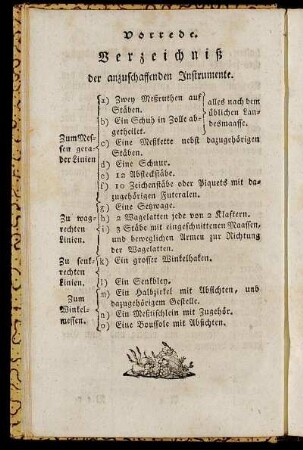 Vorrede.
Verzeichniß
der anzuschaffenden Instrumente.
a) Zwey Meßruthen auf Stäben.
b) Ein Schuh in Zolle abgetheilet.
alles nach dem üblichen Landesmaasse.
Zum Messen gerader Linien
c) Eine Meßkette nebst dazugehörigen
Stäben.
d) Eine Schnur.
e) 12 Absteckstäbe.
f) 10 Zeichenstäbe oder Piquets mit dazugehörigen Futeralen.
Zu wagrechten Linien.
g) Eine Setzwage.
h) 2 Wagelatten jede von 2 Klaftern.
i) 3 Stäbe mit eingeschnittenen Maassen,
und beweglichen Armen zur Richtung
der Wagelatten.
Zu senkrechten Linien.
k) Ein grosser Winkelhaken.
l) Ein Senkbley.
Zum Winkelmessen.
m) Ein Halbzirkel mit Absichten, und
dazugehörigem Gestelle.
n) Ein Meßtischlein mit Zugehör.
o) Eine Boussole mit Absichten.